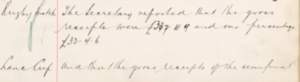 Rugby match The Secretary reported that the gross
receipts were £387 11 9 and our percentage
£33-4-6
Lane Cup And that the gross receipts of the semifinal